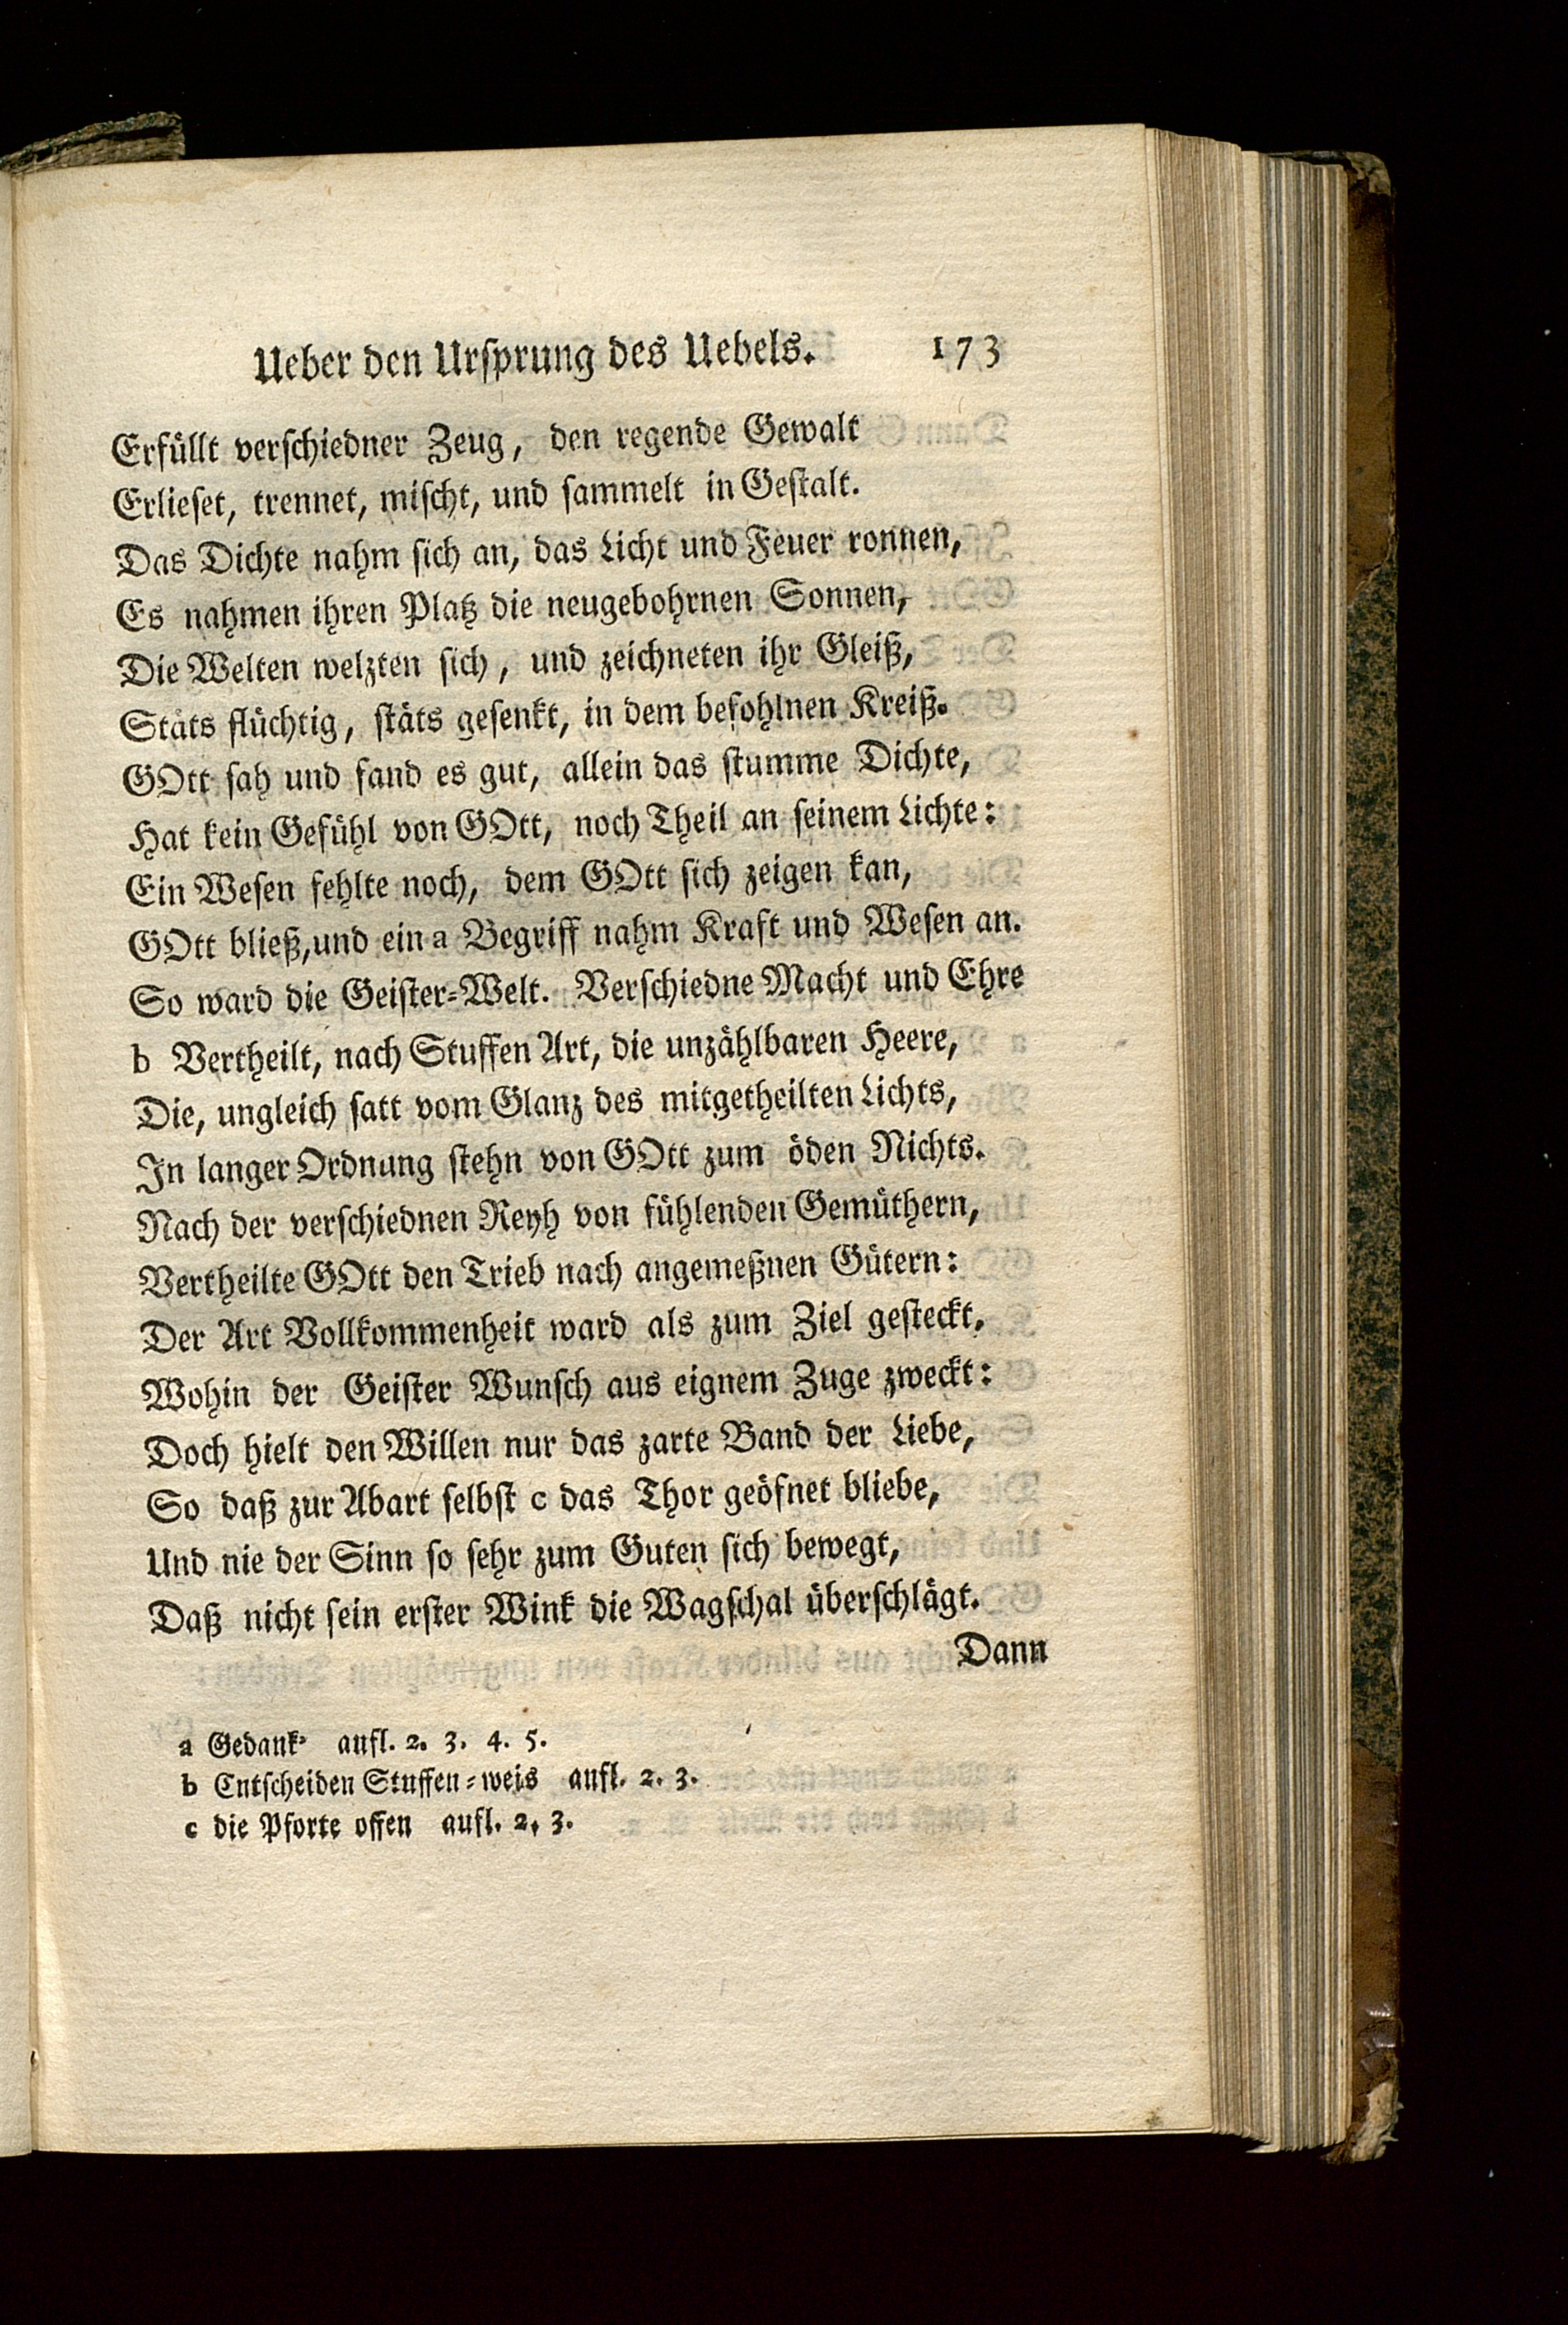 Ueber den Ursprung des Uebels. 173
Erfüllt verschiedner Zeug, den regende Gewalt
Erlieset, trennet, mischt, und sammelt in Gestalt.
Das Dichte nahm sich an, das Licht und Feuer ronnen,
Es nahmen ihren Platz die neugebohrnen Sonnen,
Die Welten welzten sich, und zeichneten ihr Gleiß,
Stäts flüchtig, stäts gesenkt, in dem befohlnen Kreiß.
GOtt sah und fand es gut, allein das stumme Dichte,
Hat kein Gefühl von GOtt, noch Theil an seinem Lichte:
Ein Wesen fehlte noch, dem GOtt sich zeigen kan,
GOtt bließ, und ein a Begriff nahm Kraft und Wesen an.
So ward die Geister-Welt. Verschiedne Macht und Ehre
b Vertheilt, nach Stuffen Art, die unzählbaren Heere,
Die, ungleich satt vom Glanz des mitgetheilten Lichts,
In langer Ordnung stehn von GOtt zum öden Nichts.
Nach der verschiednen Reyh von fühlenden Gemüthern,
Vertheilte GOtt den Trieb nach angemeßnen Gütern:
Der Art Vollkommenheit ward als zum Ziel gesteckt,
Wohin der Geister Wunsch aus eignem Zuge zweckt:
Doch hielt den Willen nur das zarte Band der Liebe,
So daß zur Abart selbst c das Thor geöfnet bliebe,
Und nie der Sinn so sehr zum Guten sich bewegt,
Daß nicht sein erster Wink die Wagschal überschlägt.
Dann
a Gedank- aufl. 2. 3. 4. 5.
b Entscheiden Stuffen-weis aufl. 2. 3.
c die Pforte offen aufl. 2, 3.